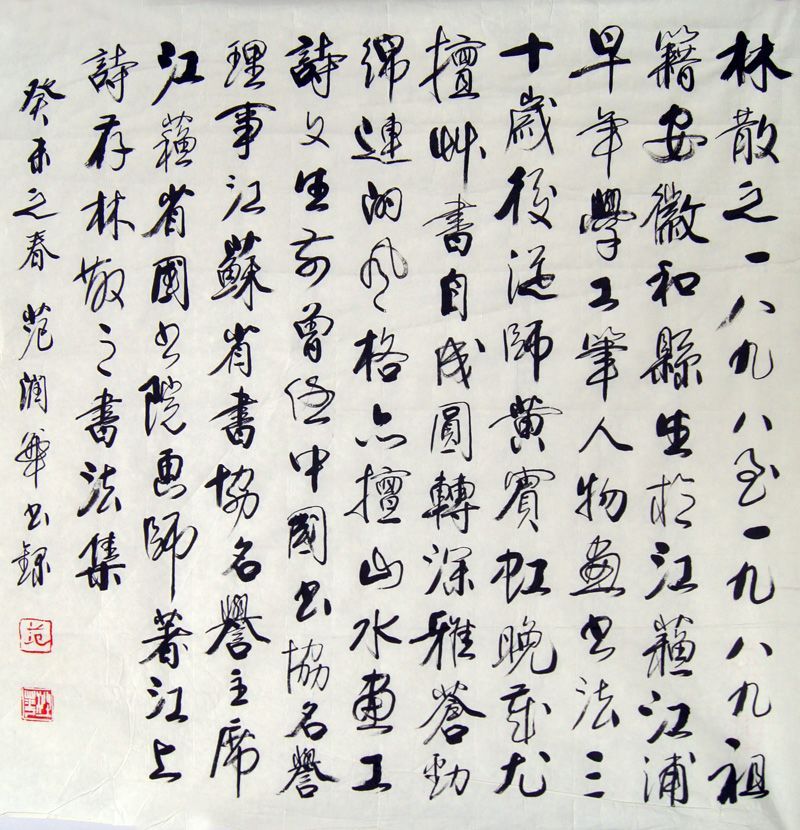 林散之一八九八至一九八九祖
籍安徽和縣生於江蘓江浦
早年學工筆人物畫书法三
十歲後従師黄賓虹晚歲尤
擅艸書自成圓轉深雅蒼勁
綿連的风格亦擅山水畫工
詩文生前曾任中國书協名譽
理事江蘇省書協名譽主席
江蘓省國书院画師著江上
詩存林散之書法集
癸未之春范潤華书録
范